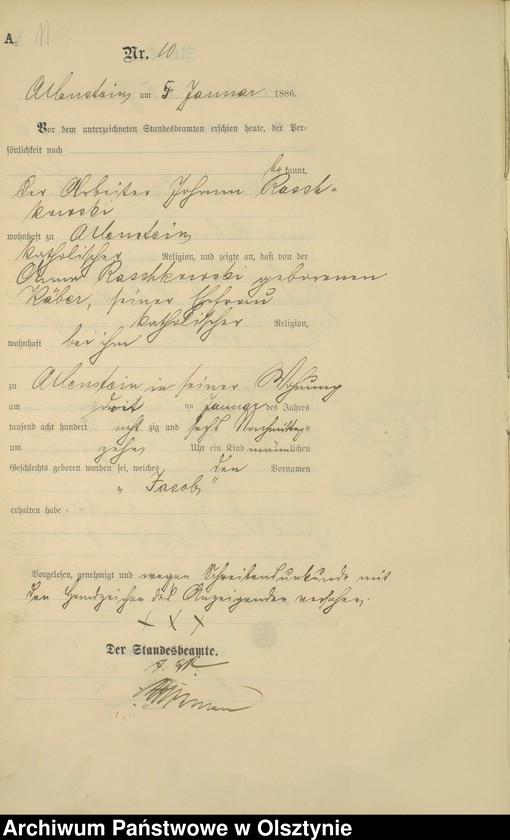 A. 11
Nr. 10
Allenstein, am 5 Januar 1886.
Vor dem unterzeichneten Standesbeamten erschien heute, der Per-
sönlichkeit nach
be kannt,
der Arbeiter Johann Rasch-
kowski
wohnhaft zu Allenstein,
katholischer Religion, und zeigte an, daß von der
Anna Raschkowski geborenen
Käber, seiner Ehefrau
katholischer Religion,
wohnhaft bei ihm
zu Allenstein in seiner Wohnung
am ten Januar des Jahres
tausend acht hundert acht zig und sechs Nachmittags
um zehn Uhr ein Kind männlichen
Geschlechts geboren worden sei, welches den Vornamen
„ Jacob "
erhalten habe.
Vorgelesen, genehmigt und wegen Schreibensunkunde mit
den Handzeichen des Anzeigenden versehen.
X X X
Der Standesbeamte.
Archiwum Państwowe w Olsztynie